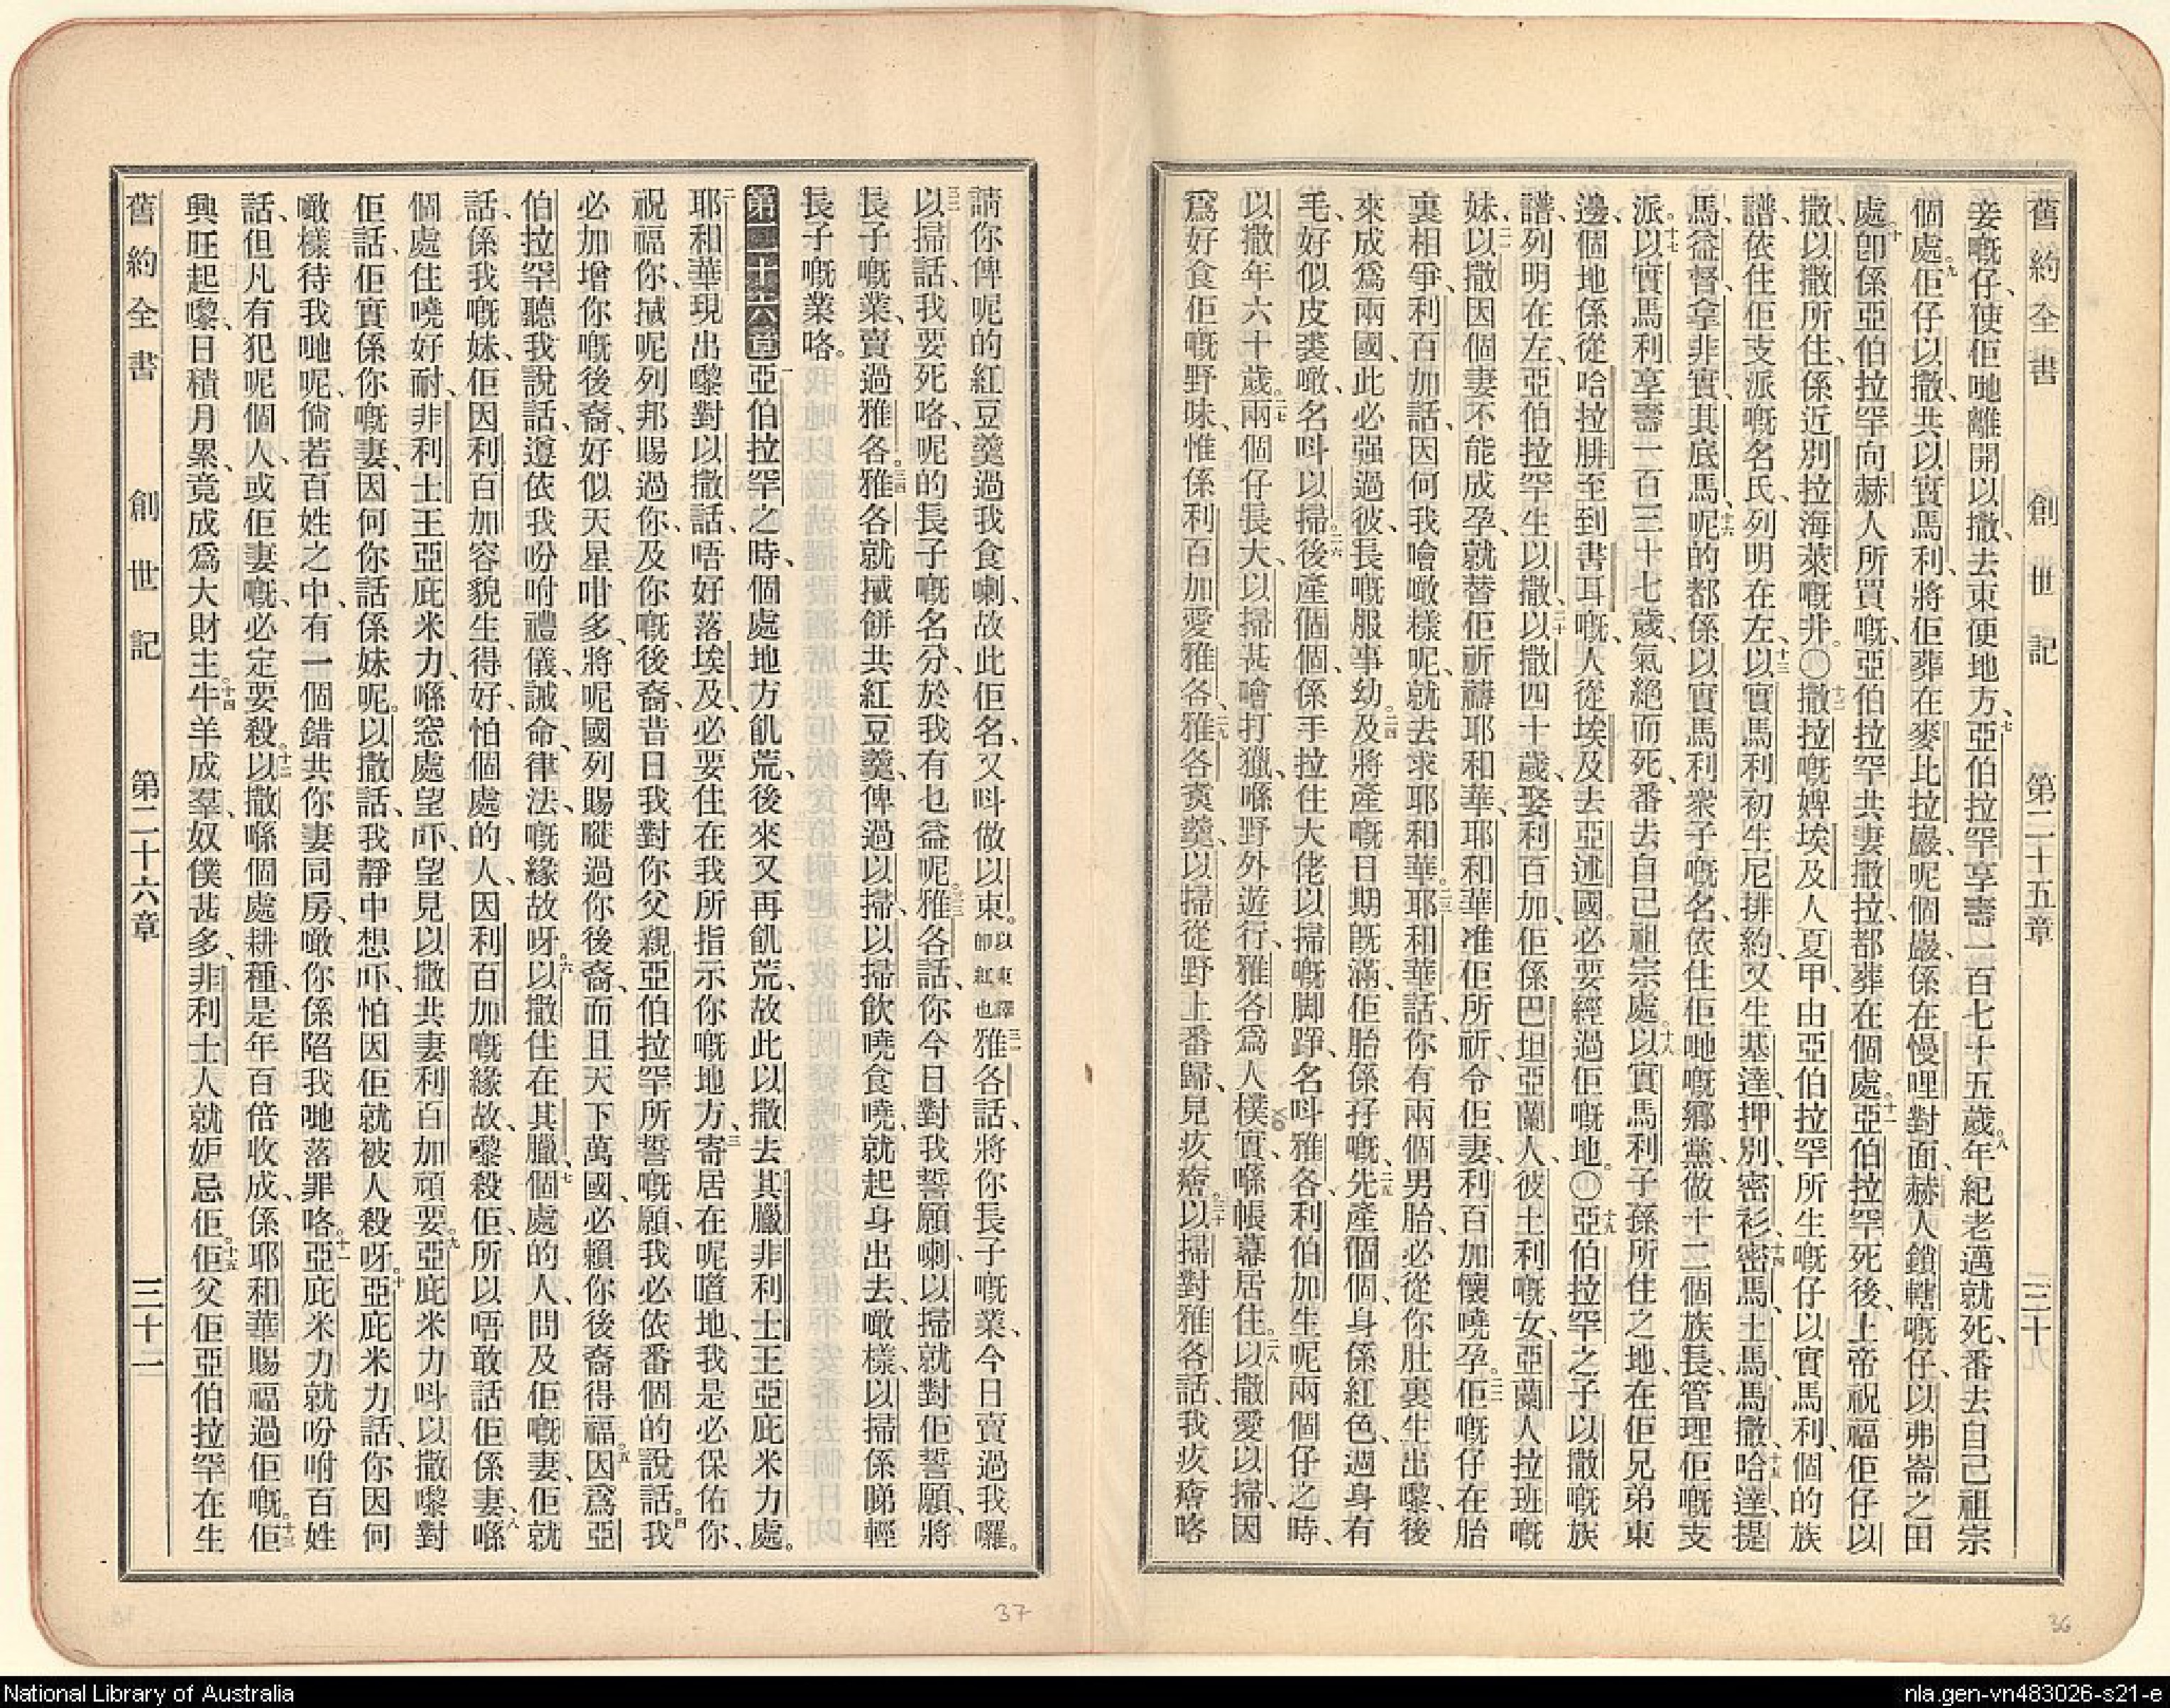 舊約全書 創世記 第二十五章 三十
妾嘅仔、使佢哋離開以撒、去東便地方、七亞伯拉罕享壽一百七十五歲。八年紀老邁就死、番去自己祖宗
個處。九佢仔以撒、共以實馬利、將佢葬在麥比拉巖、呢個巖、係在慢哩對面、赫人鎖轄嘅仔、以弗崙之田
處、十卽係亞伯拉罕向赫人所買嘅、亞伯拉罕共妻撒拉、都葬在個處。十一亞伯拉罕死後、上帝祝福佢仔以
撒、以撒所住、係近別拉海萊嘅井。〇十二撒拉嘅婢埃及人夏甲、由亞伯拉罕所生嘅仔以實馬利、個的族
譜、依住佢支派嘅名氏、列明在左、十三以實馬利初生尼排約、又生基達、押別、密衫、十四密馬、土馬、馬撒、十五哈達、提
馬、益督、拿非實、其底馬、十六呢的都係以實馬利衆子嘅名、依住佢哋嘅鄉黨、做十二個族長、管理佢嘅支
派。十七以實馬利享壽一百三十七歲、氣絕而死、番去自己祖宗處。十八以實馬利子孫所住之地、在佢兄弟東
邊、個地係從哈拉腓至到書耳嘅、人從埃及去亞述國。必要經過佢嘅地。〇十九亞伯拉罕之子以撒嘅族
譜、列明在左、亞伯拉罕生以撒、二十以撒四十歲、娶利百加、佢係巴坦亞蘭人、彼土利嘅女、亞蘭人拉班嘅
妹、二一以撒因個妻不能成孕、就替佢祈禱耶和華、耶和華准佢所祈、令佢妻、利百加懷嘵孕。二二佢嘅仔在胎
裏相爭、利百加話、因何我噲噉樣呢、就去求耶和華。二三耶和華話、你有兩個男胎、必從你肚裏生出嚟、後
來成爲兩國、此必强過彼、長嘅服事幼。二四及將產嘅日期旣滿、佢胎係孖嘅、二五先產個個、身係紅色、週身有
毛、好似皮裘噉、名呌以掃。二六後產個個、係手拉住大佬以掃嘅脚踭、名呌雅各、利伯加生呢兩個仔之時、
以撒年六十歲。二七兩個仔長大、以掃甚噲打獵、喺野外遊行、雅各爲人樸實、喺帳幕居住。二八以撒愛以掃、因
爲好食佢嘅野味、惟係利百加愛雅各、二九雅各煑羹、以掃從野上番歸、見疚癐。三十以掃對雅各話、我疚癐咯
請你俾呢的紅豆羹過我食喇、故此佢名、又呌做以東。以東譯卽紅也三一雅各話、將你長子嘅業、今日賣過我囉。
三二以掃話、我要死咯、呢的長子嘅名分、於我有乜益呢。三三雅各話、你今日對我誓願喇、以掃就對佢誓願、將
長子嘅業、賣過雅各。三四雅各就摵餅共紅豆羹、俾過以掃、以掃飲嘵食嘵、就起身出去、噉樣、以掃係睇輕
長子嘅業咯。
第二十六章 一亞伯拉罕之時、個處地方飢荒、後來又再飢荒、故此以撒去其臘非利士王亞庇米力處。
二耶和華現出嚟對以撒話、唔好落埃及、必要住在我所指示你嘅地方、三寄居在呢噾地、我是必保佑你、
祝福你、摵呢列邦賜過你、及你嘅後裔、昔日我對你父親亞伯拉罕所誓嘅願、我必依番個的說話。四我
必加增你嘅後裔、好似天星咁多、將呢國列賜嚨過你後裔、而且天下萬國、必賴你後裔得福。五因爲亞
伯拉罕聽我說話、遵依我吩咐禮儀、誡命、律法、嘅緣故呀。六以撒住在其臘、七個處的人、問及佢嘅妻、佢就
話、係我嘅妹、佢因利百加容貌生得好、怕個處的人、因利百加嘅緣故、嚟殺佢、所以唔敢話佢係妻、八喺
個處住嘵好耐、非利士王亞庇米力、喺窓處望吓、望見以撒共妻利百加頑耍。九亞庇米力呌以撒嚟對
佢話、佢實係你嘅妻、因何你話係妹呢。以撒話、我靜中想吓、怕因佢就被人殺呀。十亞庇米力話、你因何
噉樣待我哋呢、倘若百姓之中、有一個錯共你妻同房、噉你係陷我哋落罪咯。十一亞庇米力就吩咐百姓
話、但凡有犯呢個人、或佢妻嘅、必定要殺。十二以撒喺個處耕種、是年百倍收成、係耶和華賜福過佢嘅。十三佢
興旺起嚟、日積月累、竟成爲大財主。十四牛羊成羣、奴僕甚多、非利士人就妒忌佢。十五佢父佢亞伯拉罕在生
舊約全書 創世記 第二十六章 三十一
37
36
National Library of Australia
nla.gen-vn483026-s21-e